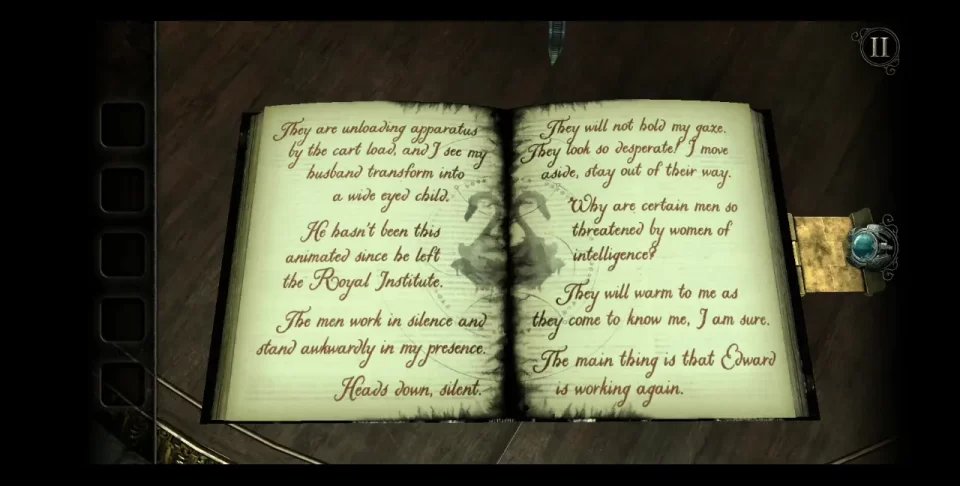 They are unloading apparatus
by the cart load, and I see my
husband transform into
a wide eyed child.
He hasn't been this
animated since he left
the Royal Institute.
The men work in silence and
stand awkwardly in my presence.
Heads down, silent.
They will not hold my gaze.
They look so desperate! I move
aside, stay out of their way.
Why are certain men so
threatened by women of
intelligence?
They will warm to me as
they come to know me, I am sure.
The main thing is that Edward
is working again.
II